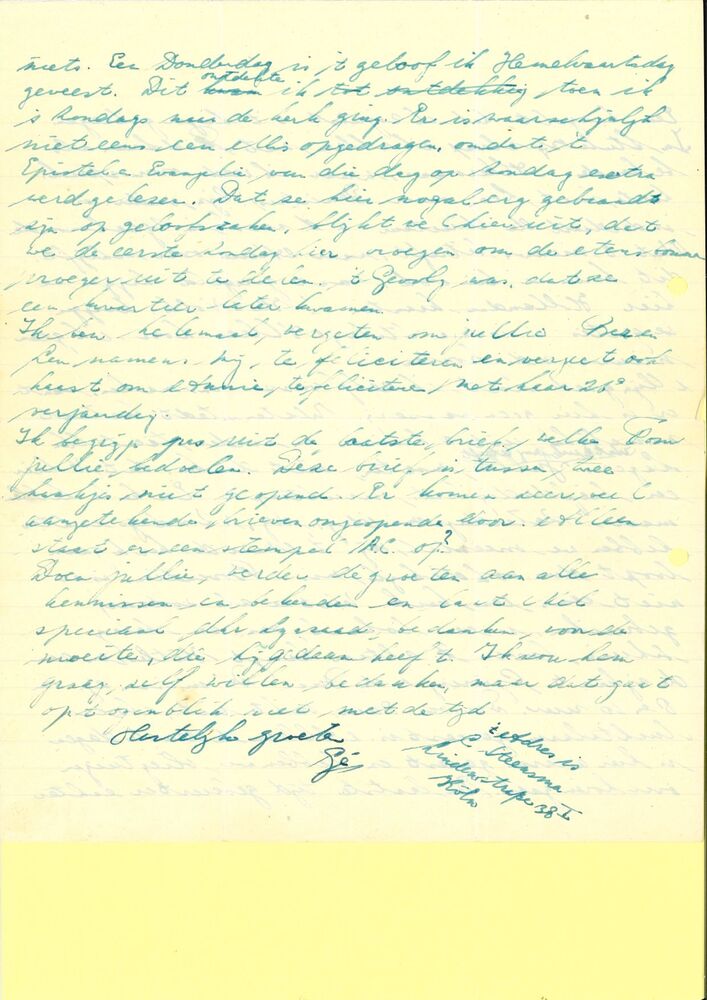 niets. Een Donderdag is 't geloof ik Hemelvaartsdag
geweest. Dit ontdekte ik tot ontdekking toen ik
's Zondags naar de kerk ging. Er is waarschijnlijk
niet eens een Mis opgedragen, omdat 't
Epistel en Evangelie van die dag op Zondag extra
werd gelezen. Dat ze hier nogal erg gebrand
zijn op geloofszaken, blijkt wel hieruit, dat
we de eerste Zondag hier vroegen om de etens bonnen
vroeger uit te delen. 't Gevolg was, dat ze
een kwartier later kwamen.
Ik ben helemaal vergeten om jullie
namens mij, te feliciteren en vergeet ook
haast om Annie, te feliciteren, met haar 26e
verjaardag.
Ik begrijp pas uit de laatste, brief, welke Tom
jullie, bedoelen. Deze brief, is tussen, twee
haakjes niet geopend. Er komen zeer veel
aangetekende, brieven ongeopende door. Alleen
staat er een stempel A.C. op?
Doen jullie, verder de groeten aan alle
kennissen en bekenden en laat Wil
speciaal dhr bedanken, voor de
moeite, die hij gedaan heeft. Ik zou hem
graag, zelf willen bedanken, maar dat gaat
op 't ogenblik niet met de tijd
Hartelijke groete
Gé
't Adres is
C. Steensma
Lindenstrasse 38 I
Köln